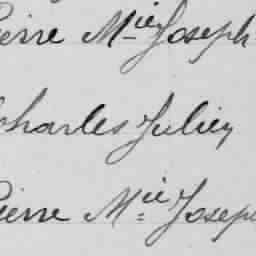 Pierre Mie Joseph
Charles Julien
Pierre Mie Joseph